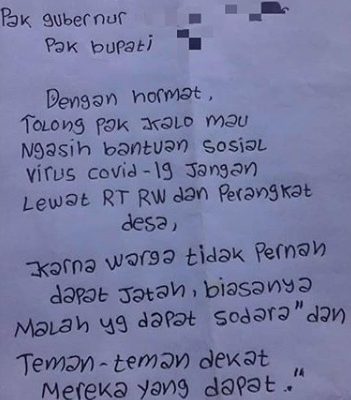 Pak gubernur
Pak bupati
Dengan hormat,
Tolong pak kalo mau
Ngasih bantuan sosial
Virus covid-19 Jangan
Lewat RT RW dan Perangkat
desa,
Karna warga tidak Pernah
dapat Jatah, biasanya
Malah yg dapat sodara" dan
Teman-teman dekat
Mereka yang dapat."